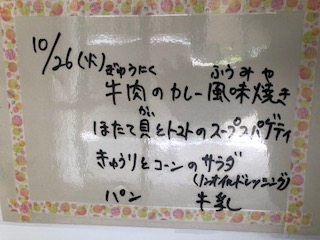 10/26(火)
ぎゅうにく ふうみや
牛肉のカレー風味焼き
がい
ほたて貝とトマトのスープスパゲティ
きゅうりとコーンのサラダ
(ノンオイルドレッシング)
パン 牛乳